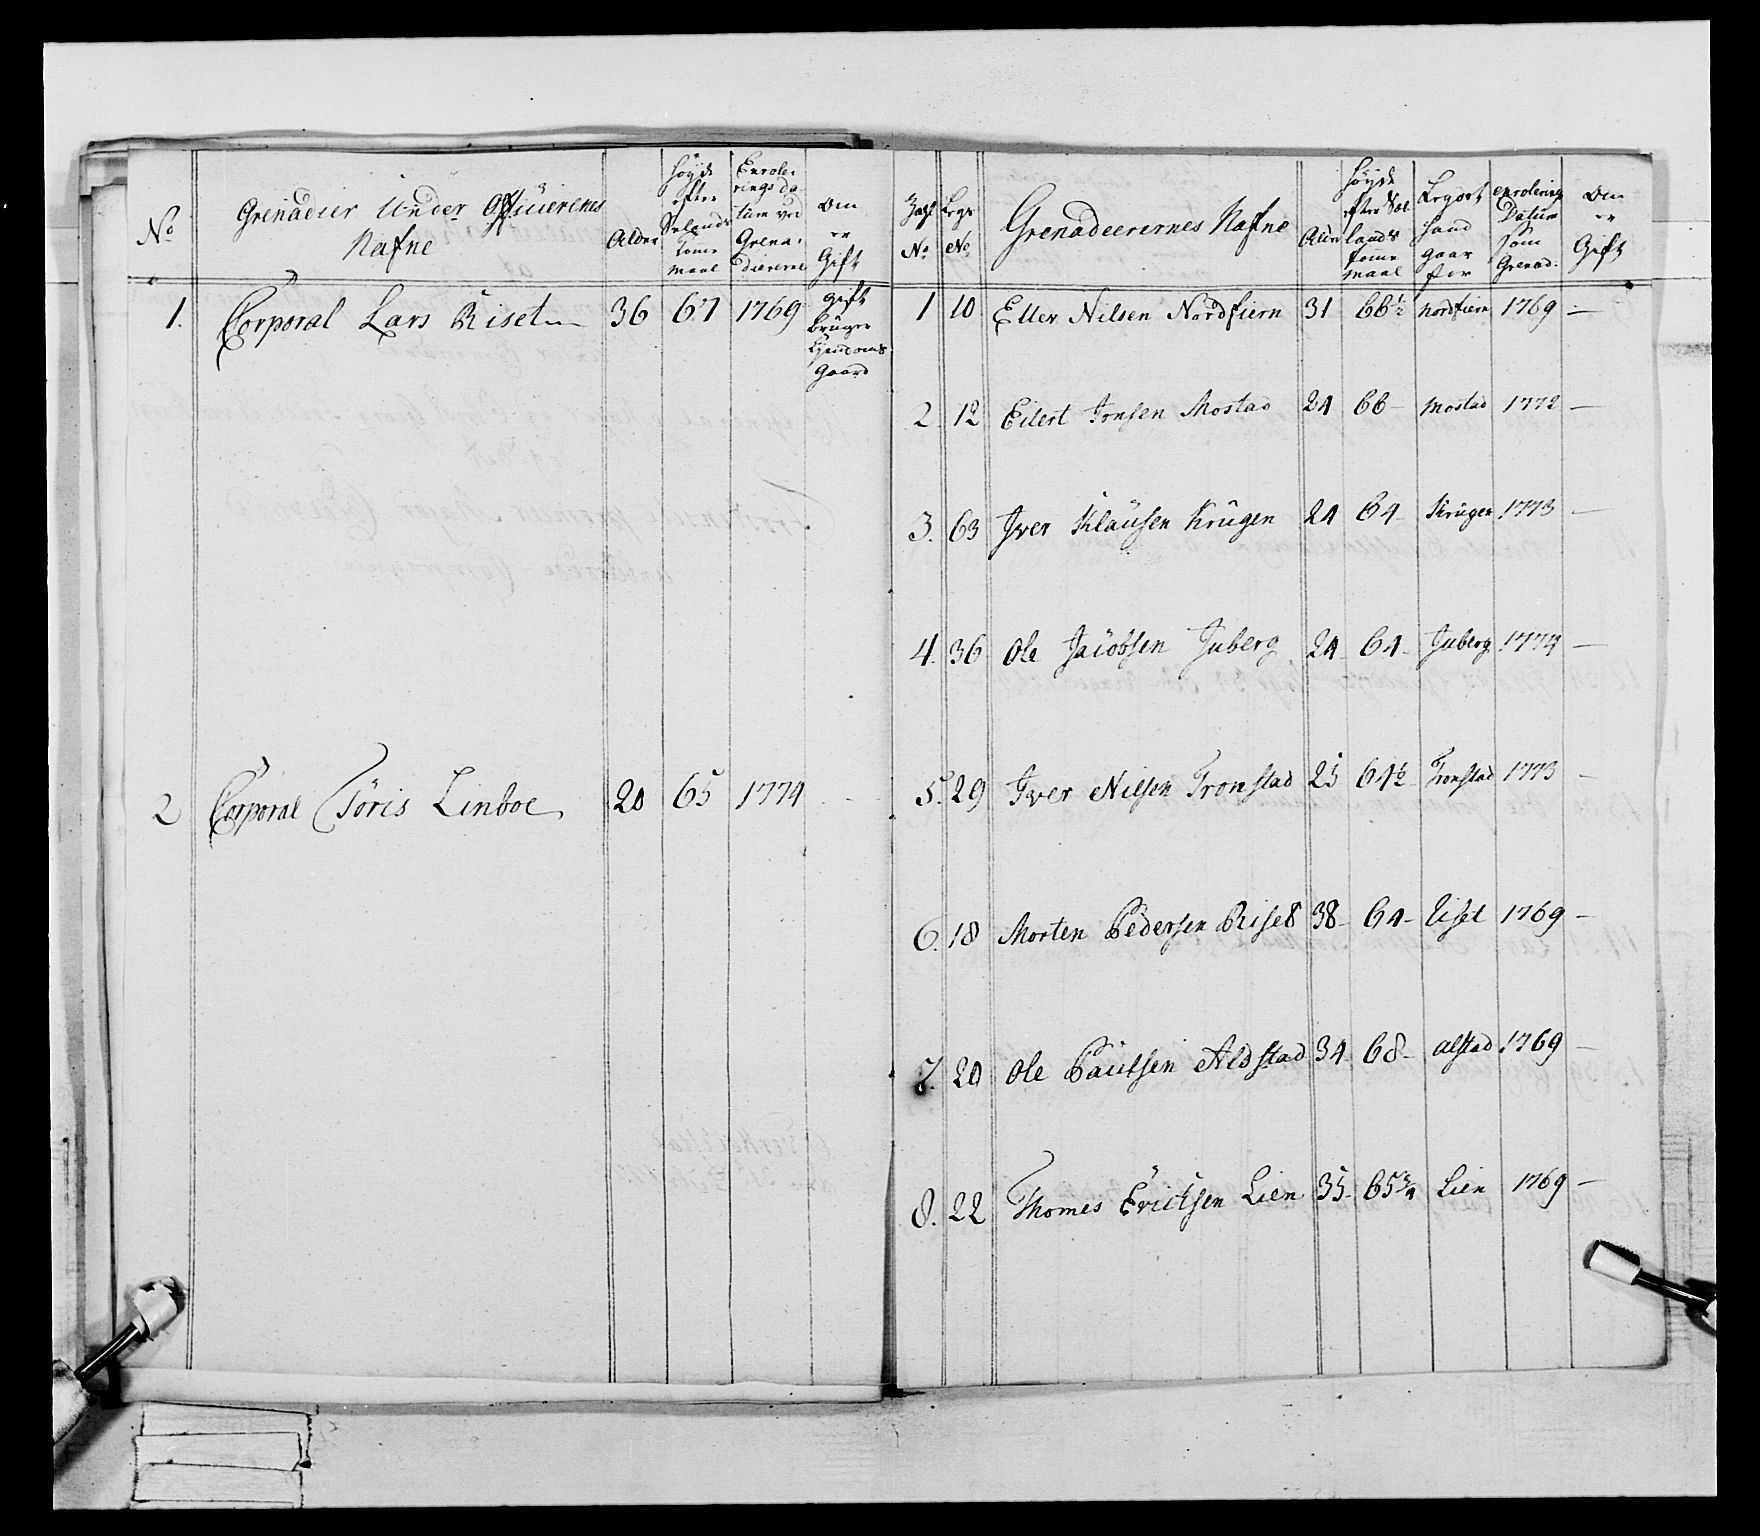 No
Grenadier Under Officierenes
Nafne
Alder
Høyde
efter
Selands
Tome
maal
Enrole-
rings da-
tum ved
Grena-
diererne
om
er
Gift
1. Corporal Lars Riset 36 67 1769 gift
bruger
Gaard
2 Corporal Töris Linboe 20 65 1774
No
Legs
No
Grenadeerernes Nafne
Alder
Høyde
efter Sæ-
lands
tome
maal
Legort
hand
gaar
for
enrolering
Datum
som
Grenad.
om
er
Gift
1 10 Eller Nilsen Nordfiern 31 66½ Nordfiern 1769 —
2 12 Eilert Jonsen Mostad 24 66 — Mostad 1772 —
3. 63 Iver Klausen Krugen 24 64 — Krugen 1773 —
4. 36 Ole Jacobsen Juberg 24 64 — Juberg 1774 —
5. 29 Iver Nilsen Tronstad 25 64½ Tronstad 1773 —
6. 18 Morten Pedersen Riset 38 — 64 — Riset 1769 —
7. 20 Ole Paulsen Aldstad 34 68 — Alstad 1769 —
8. 22 Thomes Ericksen Lien 35 — 65¾ Lien 1769 —